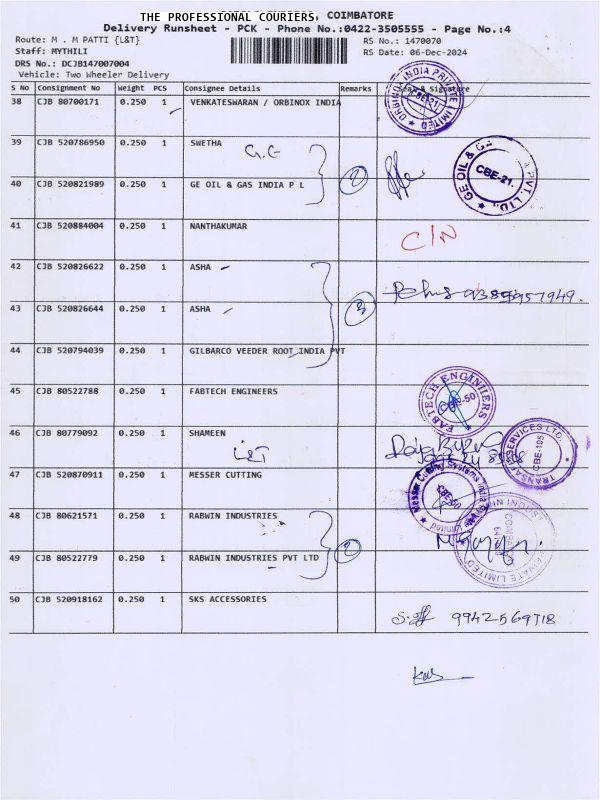 THE PROFESSIONAL COURIERS, COIMBATORE
Delivery Runsheet - PCK - Phone No.:0422-3505555 - Page No.:4
Route: M . M PATTI {L&T}
RS No.: 1470070
Staff: MYTHILI
RS Date: 06-Dec-2024
DRS No.: DCJB147007004
Vehicle: Two Wheeler Delivery
S No Consignment No Weight PCS Consignee Details Remarks Seal & Signature
38 CJB 80700171 0.250 1 VENKATESWARAN / ORBINOX INDIA
ORBINOX INDIA PRIVATE LIMITED
39 CJB 520786950 0.250 1 SWETHA
G.E
40 CJB 520821989 0.250 1 GE OIL & GAS INDIA P L 2
GE OIL & GAS PVT. LTD. CBE-21.
41 CJB 520884004 0.250 1 NANTHAKUMAR
C/N
42 CJB 520826622 0.250 1 ASHA
43 CJB 520826644 0.250 1 ASHA 3
44 CJB 520794039 0.250 1 GILBARCO VEEDER ROOT INDIA PVT
45 CJB 80522788 0.250 1 FABTECH ENGINEERS
FABTECH ENGINEERS
46 CJB 80779092 0.250 1 SHAMEEN
L&T
TRANSAFE SERVICES LTD. CBE-105
47 CJB 520870911 0.250 1 MESSER CUTTING
Messer Cutting Systems India Limited
48 CJB 80621571 0.250 1 RABWIN INDUSTRIES
49 CJB 80522779 0.250 1 RABWIN INDUSTRIES PVT LTD 2
50 CJB 520918162 0.250 1 SKS ACCESSORIES